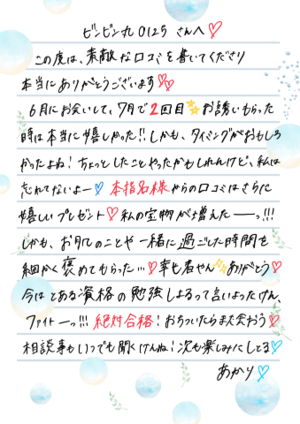 ビンビン丸0125 さんへ♡
この度は、素敵な口コミを書いてくださり
本当にありがとうございます♡♡
6月にお会いして、7月で2回目✨お誘いもらった
時は本当に嬉しかった!!しかも、タイミングがおもしろ
かったよね!ちょっとしたことやったかもしれんけど、私は
忘れてないよー♡本指名様からの口コミはさらに
嬉しいプレゼント♡私の宝物が増えたーーっ!!!
しかも、お肌のことや一緒に過ごした時間を
細かく褒めてもらった…♡幸せ者やん✨ありがとう♡
今はとある資格の勉強しよるって言いよったけん、
ファイトーっ!!!絶対合格!おちついたらまた会おう♡
相談事もいつでも聞くけんね!次も楽しみにしてる♡
あかり♡